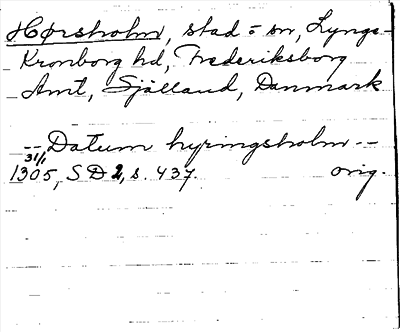 Hørsholm, stad o sn, Lynge-
Kronborg hd, Frederiksborg
Amt, Själland, Danmark
-- Datum hyringsholm --
31/1
1305, SD 2, s. 437. orig.